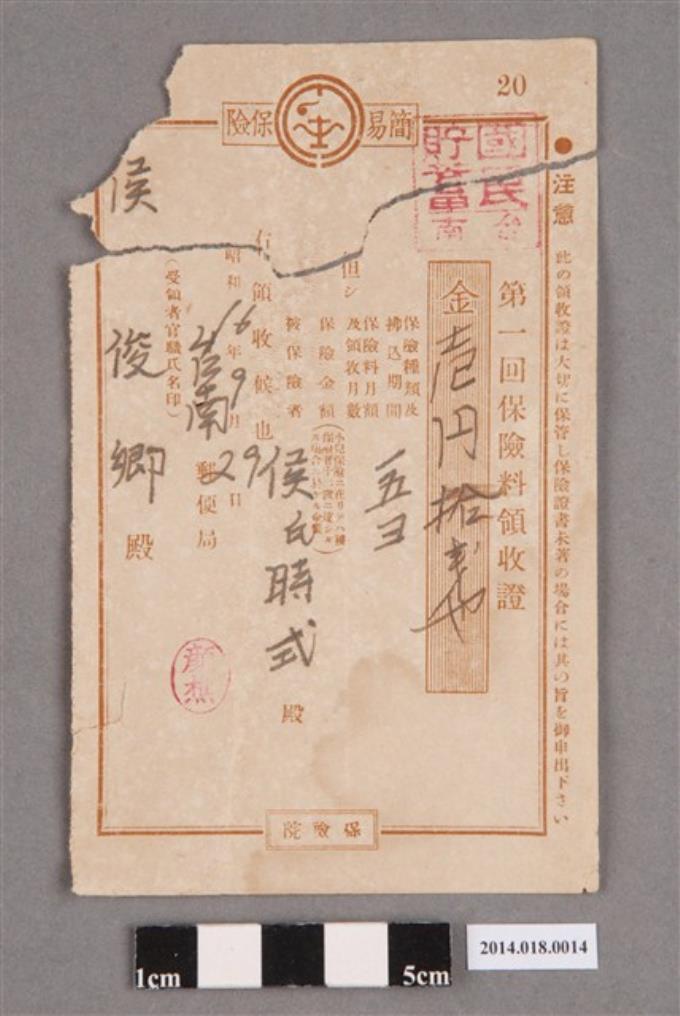 20
簡易保險
國民
貯蓄
台
南
●注意 此の領收證は大切に保管し保險證書未著の場合には其の旨を御申出下さい
第一回保險料領收證
金壱円拾
保險種類及
拂込期間
保險料月額
及領收月數
五ヨ
但シ
保險金額
被保險者
侯氏時式 殿
右領收候也
昭和16年9月29日
台南郵便局
(受領者官職氏名印)
侯俊卿 殿
保險院
1cm
5cm
2014.018.0014